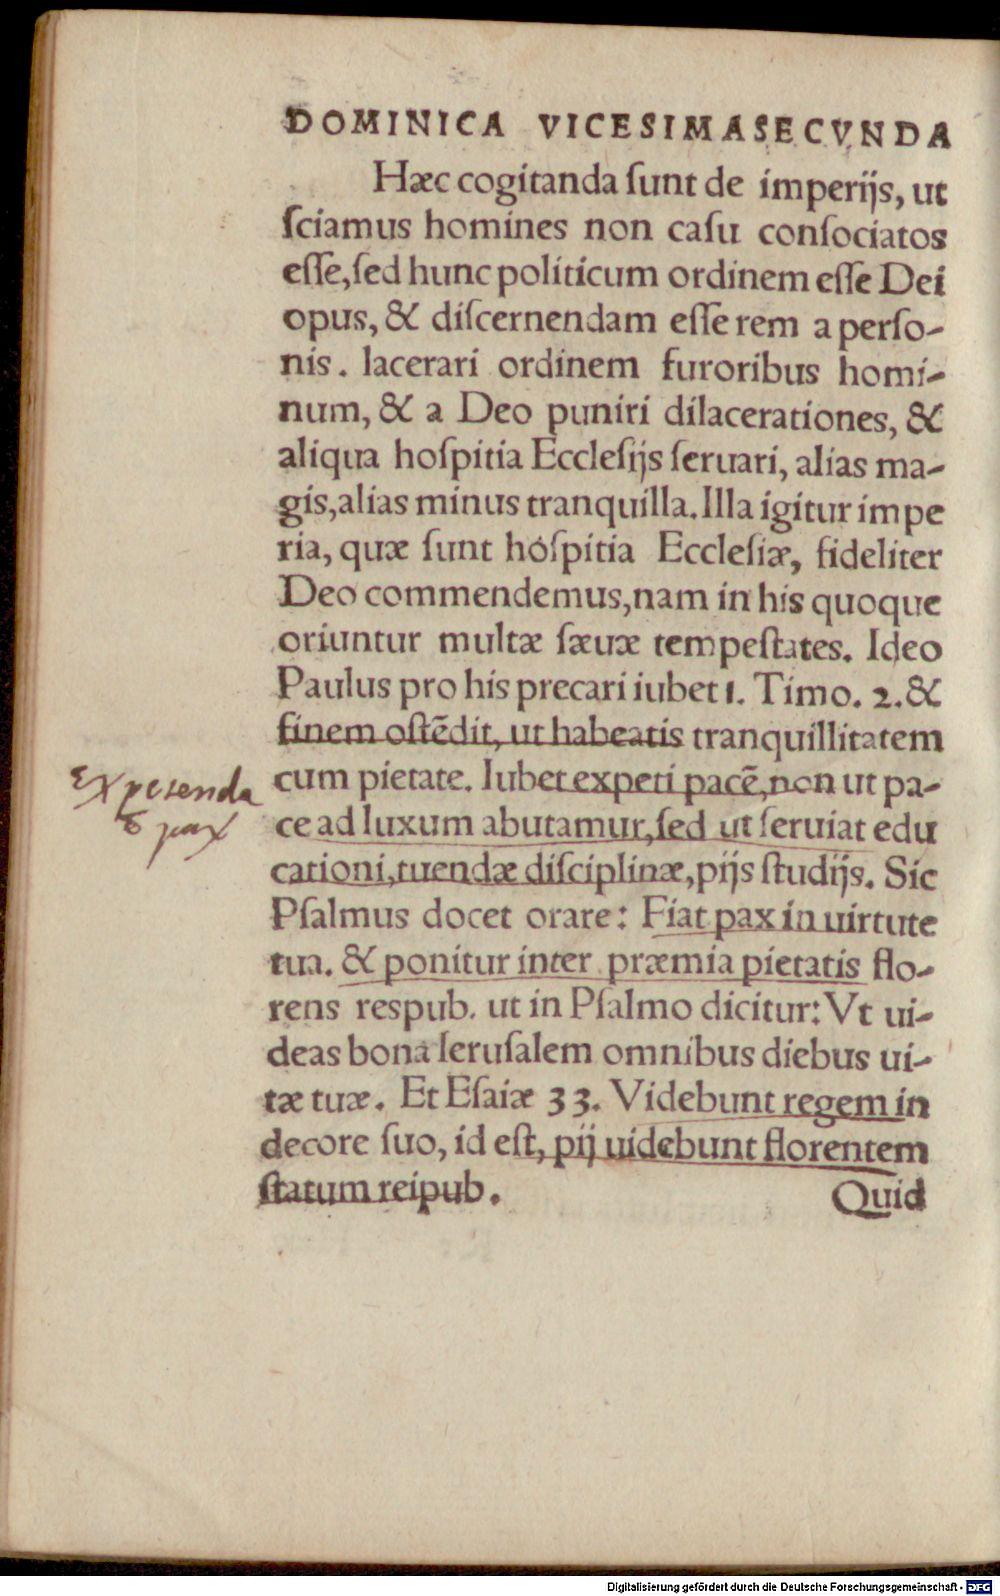 DOMINICA VICESIMASECVNDA
Hæc cogitanda sunt de imperijs, ut
sciamus homines non casu consociatos
esse, sed hunc politicum ordinem esse Dei
opus, & discernendam esse rem a perso-
nis. lacerari ordinem furoribus homi-
num, & a Deo puniri dilacerationes, &
aliqua hospitia Ecclesijs seruari, alias ma-
gis, alias minus tranquilla. Illa igitur impe
ria, quæ sunt hospitia Ecclesiæ, fideliter
Deo commendemus, nam in his quoque
oriuntur multæ sæuæ tempestates. Ideo
Paulus pro his precari iubet 1. Timo. 2. &
finem ostēdit, ut habeatis tranquillitatem
cum pietate. Iubet expeti pacē, non ut pa-
ce ad luxum abutamur, sed ut seruiat edu
cationi, tuendæ disciplinæ, pijs studijs. Sic
Psalmus docet orare: Fiat pax in uirtute
tua. & ponitur inter præmia pietatis flo-
rens respub. ut in Psalmo dicitur: Vt ui-
deas bona Ierusalem omnibus diebus ui-
tæ tuæ. Et Esaiæ 33. Videbunt regem in
decore suo, id est, pij uidebunt florentem
statum reipub. Quid
Expetenda
pax
Digitalisierung gefördert durch die Deutsche Forschungsgemeinschaft - DFG